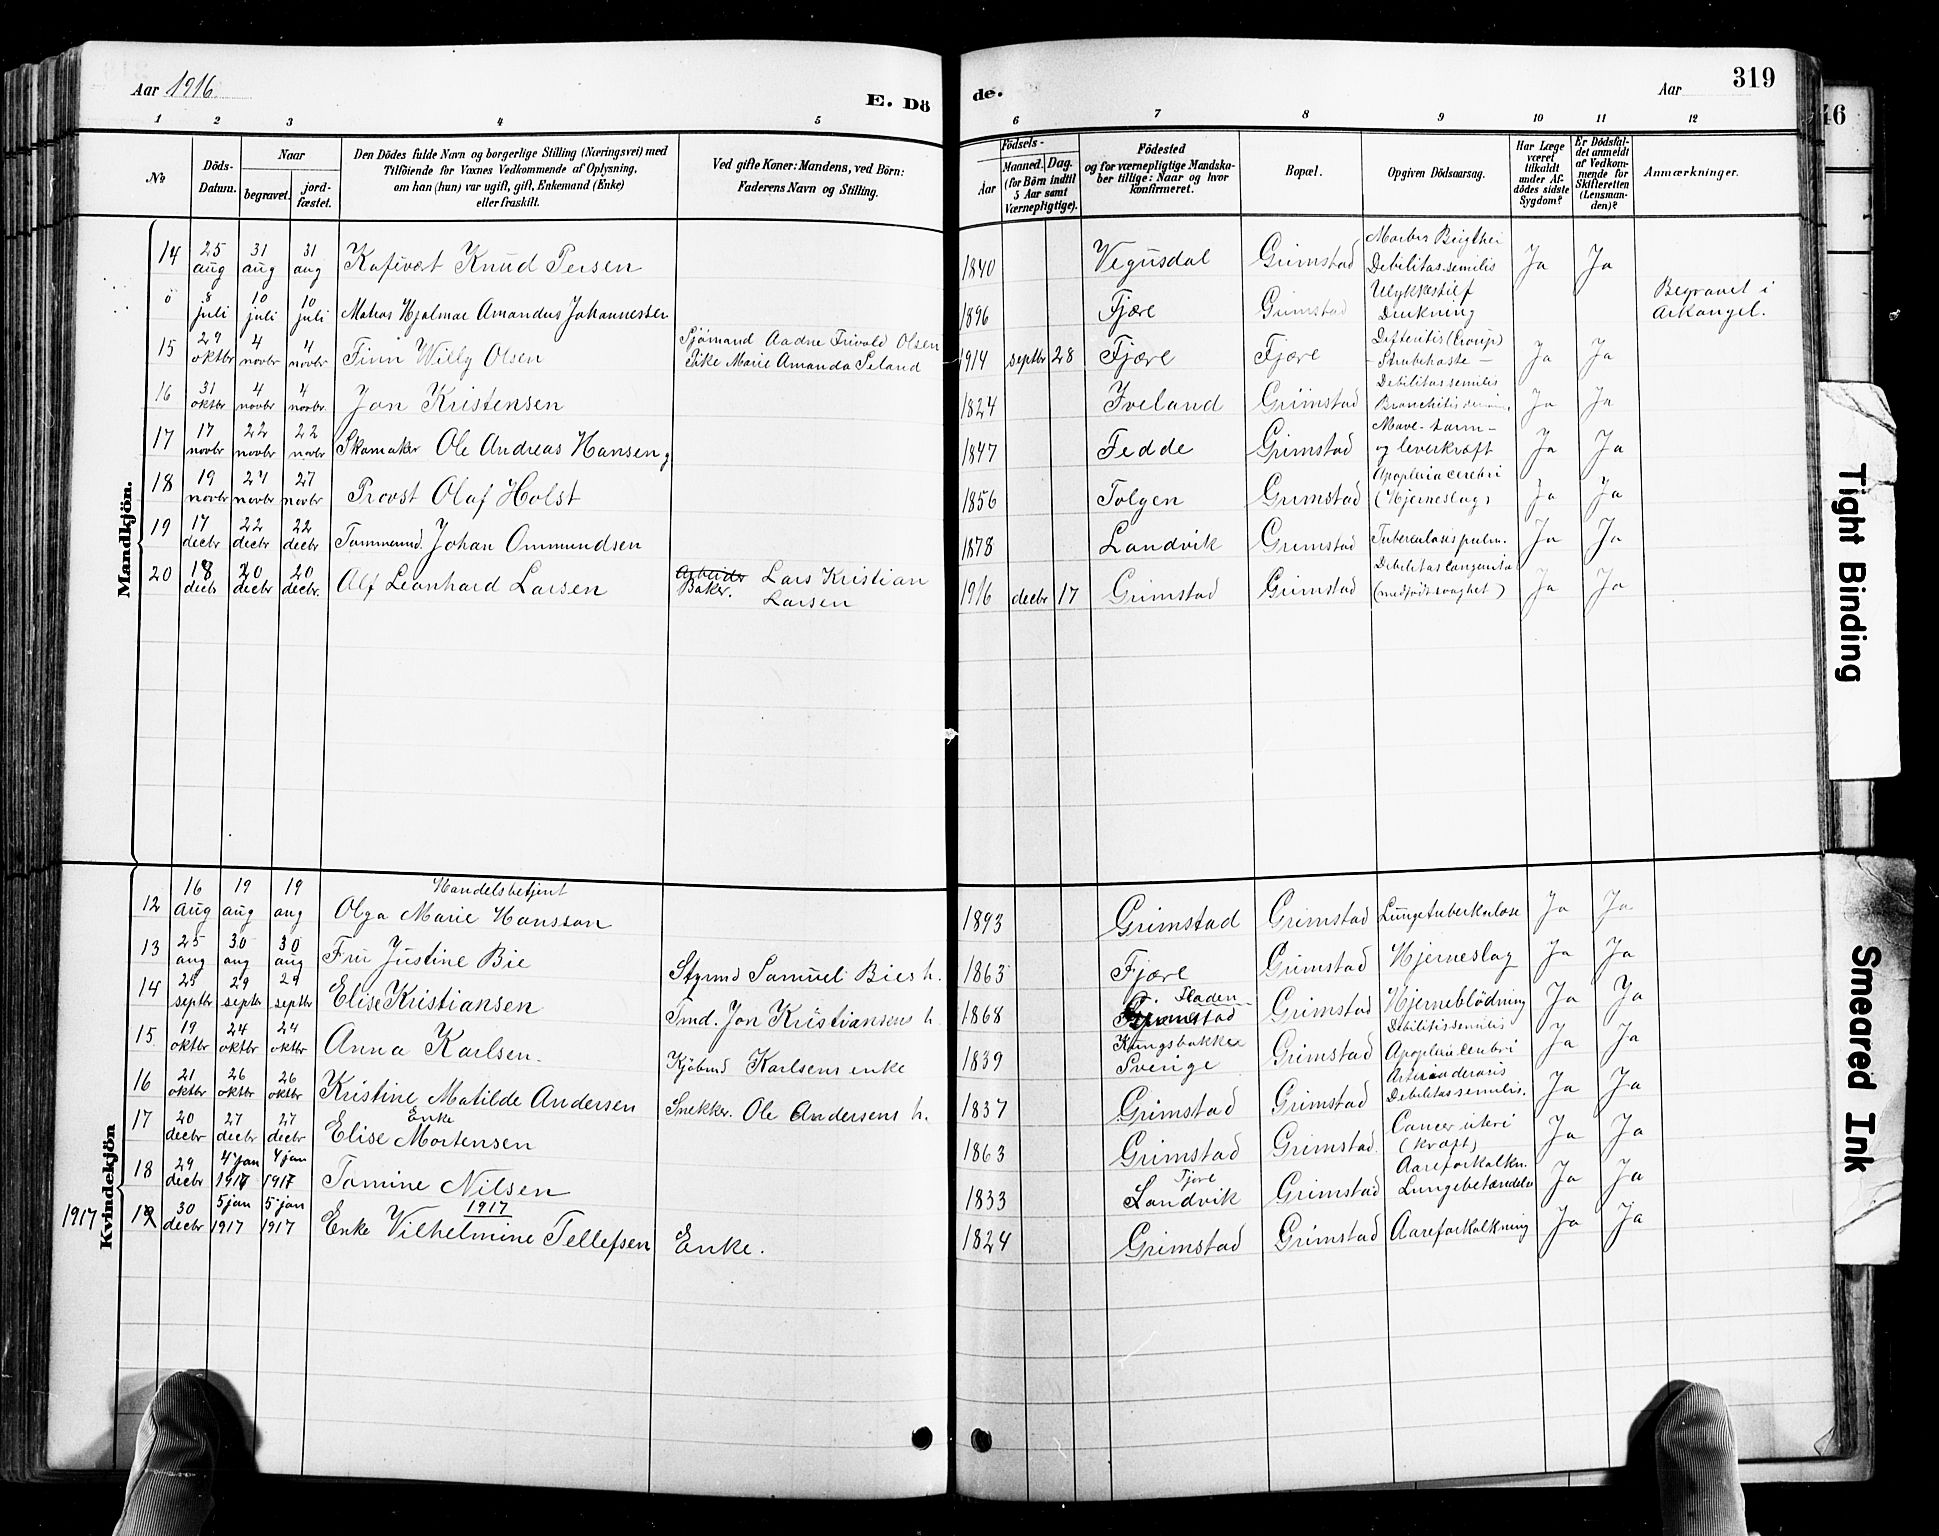 Aar 1916.
E. Dö
de.
Aar
319
46
1 2 3 4 5 6 7 8 9 10 11 12
No
Döds-Datum.
Naar
begravet.
jord-fæstet.
Den Dödes fulde Navn og borgerlige Stilling (Næringsvei) med
Tilföiende for Voxnes Vedkommende af Oplysning,
om han (hun) var ugift, gift, Enkemand (Enke)
eller fraskilt.
Ved gifte Koner: Mandens, ved Börn:
Faderens Navn og Stilling.
Födsels-
Aar
Maaned. Dag.
(for Börn indtil
5 Aar samt
Værnepligtige).
Födested
og for værnepligtige Mandska-
ber tillige: Naar og hvor
konfirmeret.
Bopæl.
Opgiven Dödsaarsag.
Har Læge
været
tilkaldt
under Af-
dödes sidste
Sygdom?
Er Dödsfal-
det anmeldt
af Vedkom-
mende for
Skifteretten
(Lensman-
den)?
Anmærkninger.
Mandkjön.
14 25 aug 31 aug 31 aug Knud Persen 1840 Vegusdal Grimstad Debilitas senilis Ja Ja
0 8 juli 10 juli 10 juli Matros Hjalmar Amandus Johannessen 1896 Fjære Grimstad Ulykkestilf Drukning Begravet i Arkangel.
15 29 oktbr 4 novbr 4 novbr Finn Willy Olsen Sjömand Aadne Frivald Olsen Pike Marie Amanda Seland 1914 septbr 28 Fjære Fjære Difteritis (Croup) - Strubehoste - Ja Ja
16 31 oktbr 4 novbr 4 novbr. Jon Kristensen 1824 Iveland Grimstad Debilitas senilis Ja Ja
17 17 novbr 22 novbr 22 novbr Skomaker Ole Andreas Hansen 1847 Fedde Grimstad Mave-tarm- og leverkræft Ja Ja
18 19 novbr 27 novbr Provst Olaf Holst 1856 Tolgen Grimstad Apoplexia cerebri (Hjerneslag) Ja Ja
19 17 decbr 22 decbr 22 decbr Tømmermd. Johan Ommundsen 1878 Landvik Grimstad Tuberculosis pulm. Ja Ja
20 18 decb 20 decbr 20 decbr. Alf Leonhard Larsen Arbeider Baker. Lars Kristian Larsen 1916 decbr 17 Grimstad Grimstad Debilitas congenita (medfödt svaghet) Ja Ja
Kvindekjön
12 16 aug 19 aug 19 aug Handelsbetjent Olga Marie Hansson 1893 Grimstad Grimstad Lungetuberkulose Ja Ja
13 25 aug 30 aug 30 aug Fru Justine Bie Styrmd Samuel Bies h. 1863 Fjære Grimstad Hjerneslag Ja Ja
14 25 septbr 29 septbr 29 septbr Elise Kristiansen Tmd. Jon Kristiansens h. 1868 Grimstad Hjerneblödning Ja Ja
15. 19 oktbr 24 oktbr 24 oktbr Anna Karlsen. Kjöbmd Karlsens enke 1839 Kungsbakke Sverige Grimstad Apoplexia cerebri Ja Ja
16 21 oktbr 26 oktbr 26 oktbr Kristine Matilde Andersen Snekker. Ole Andersens h. 1837 Grimstad Grimstad Debilitas senilis. Ja Ja
17 20 decbr 27 decbr 27 decbr Enke Elise Mortensen 1863 Grimstad Grimstad. Cancer uteri (kræft) Ja Ja
18 29 decbr 4 jan 1917 4 jan 1917 Tomine Nilsen 1833 Fjære Landvik Grimstad Aareforkalkn. Lungebetændelse Ja Ja
1917
1917 19 30 decbr 5 jan 1917 5 jan 1917 Enke Vilhelmine Tellefsen Enke. 1824 Grimstad Grimstad Aareforkalkning Ja Ja
Tight Binding
Smeared Ink